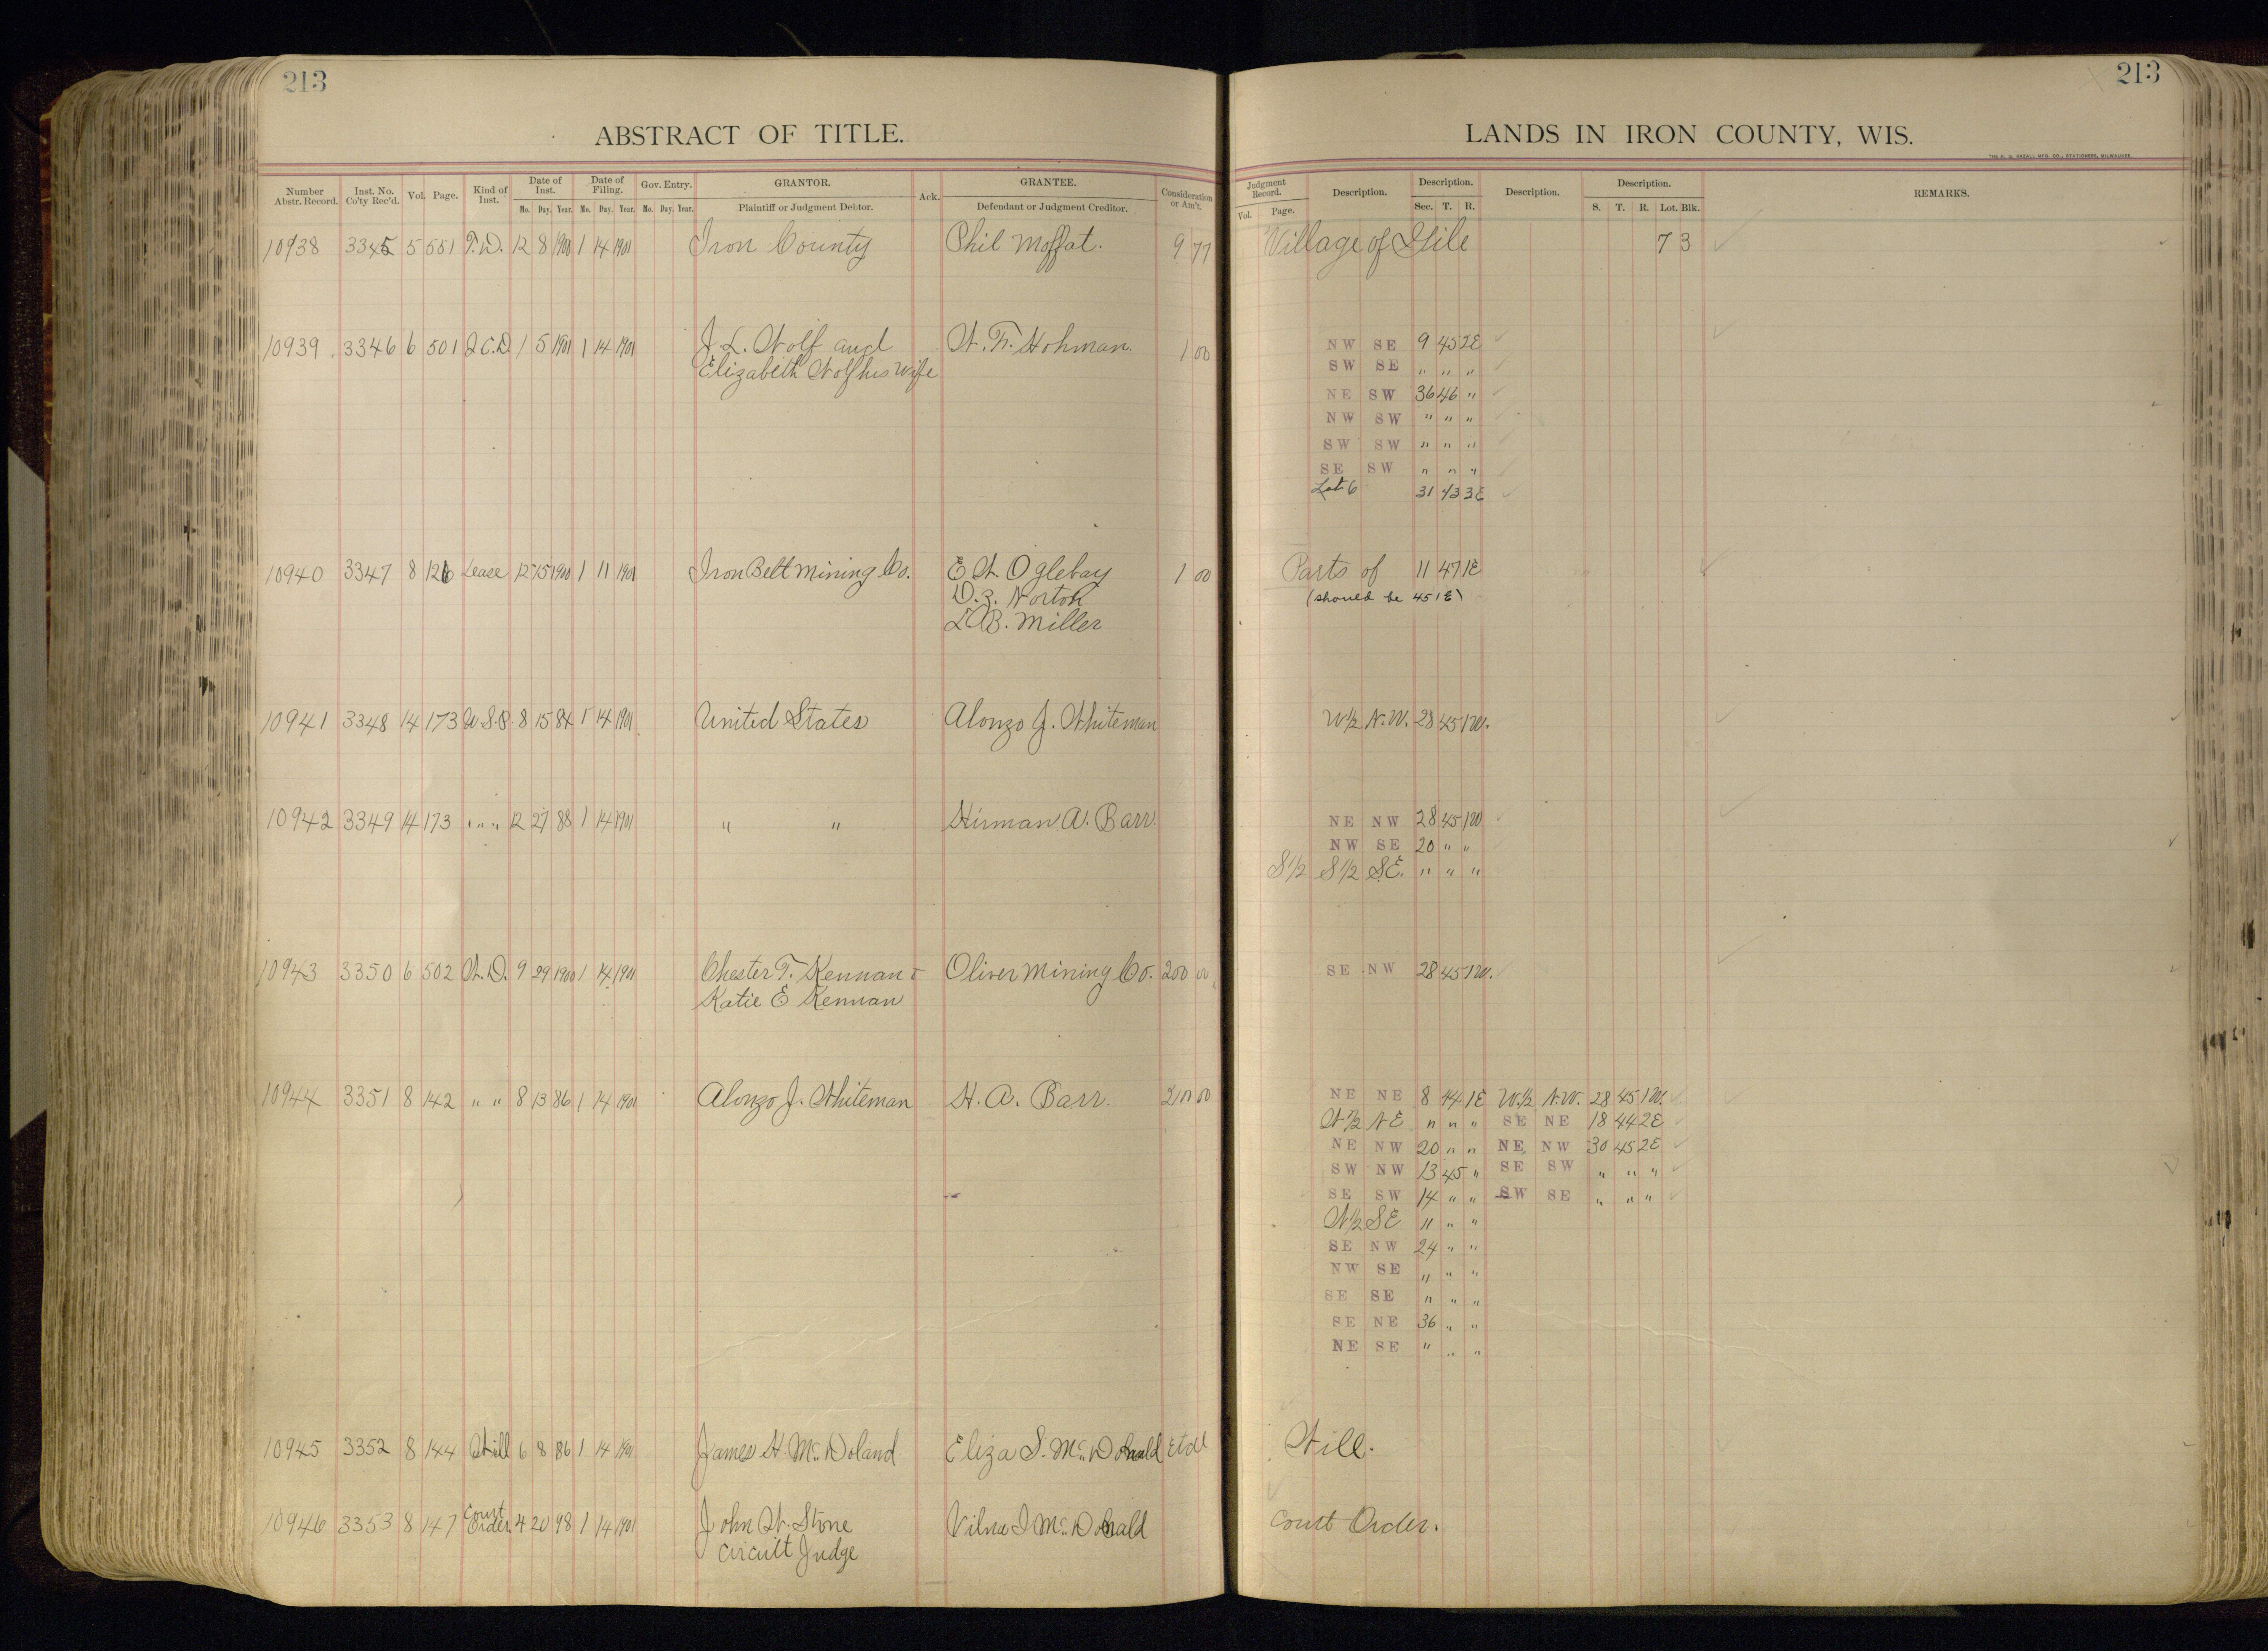 213
ABSTRACT OF TITLE.
Number Abstr. Record. Inst. No. Co'ty Rec'd. Vol. Page. Kind of Inst. Date of Inst. Mo. Day. Year. Date of Filing. Mo. Day. Year. Gov. Entry. Mo. Day. Year. GRANTOR. Plaintiff or Judgment Debtor. Ack. GRANTEE. Defendant or Judgment Creditor. Consideration or Am't.
10938 3345 5 551 T.D. 12 8 1900 1 14 1901 Iron County Phil Moffat. 9 77
10939 3346 6 501 2 C.D. 1 5 1901 1 14 1901 J. L. Wolf and W. F. Hohman. 1 00
Elizabeth Wolf his wife
10940 3347 8 126 Lease 12 15 1900 1 11 1901 Iron Belt Mining Co. E W. Oglebay 1 00
D. Z. Norton
B. Miller
10941 3348 14 173 U.S.P. 8 15 84 1 14 1901 United States Alonzo J. Whiteman
10942 3349 14 173 " " " 12 27 88 1 14 1901 " " Hirman A. Barr.
10943 3350 6 502 W.D. 9 29 1900 1 14 1901 Chester T. Kennan & Oliver Mining Co. 200 00
Katie E Kennan
10944 3351 8 142 " " 8 13 86 1 14 1901 Alonzo J. Whiteman H. A. Barr. 00
10945 3352 8 144 Will 6 8 86 1 14 1901 James H. McDoland Eliza S. McDonald Etal
10946 3353 8 147 Court Order 4 20 98 1 14 1901 John W. Stone McDonald
Circuit Judge
213
LANDS IN IRON COUNTY, WIS.
THE H. G. RAZALL MFG. CO., STATIONERS, MILWAUKEE.
Judgment Record. Vol. Page. Description. Description. Sec. T. R. Description. Description. S. T. R. Lot. Blk. REMARKS.
Village of Gile 7 3
NW SE 9 45 2E
SW SE " " "
NE SW 36 46 "
NW SW " " "
SW SW " " "
SE SW " " "
Lot 6 31 43 3E
Parts of 11 47 1E
(should be 45 1E)
W½ N.W. 28 45 1W.
NE NW 28 45 1W
NW SE 20 " "
S½ S½ S.E. " " "
SE NW 28 45 1W.
NE NE 8 44 1E W½ N.W. 28 45 1W.
N½ NE " " " SE NE 18 44 2E
NE NW 20 " " NE NW 30 45 2E
SW NW 13 45 " SE SW " " "
SE SW 14 " " SW SE " " "
N½ SE 11 " "
SE NW 24 " "
NW SE " " "
SE SE " " "
SE NE 36 " "
NE SE " " "
Will.
Court Order.